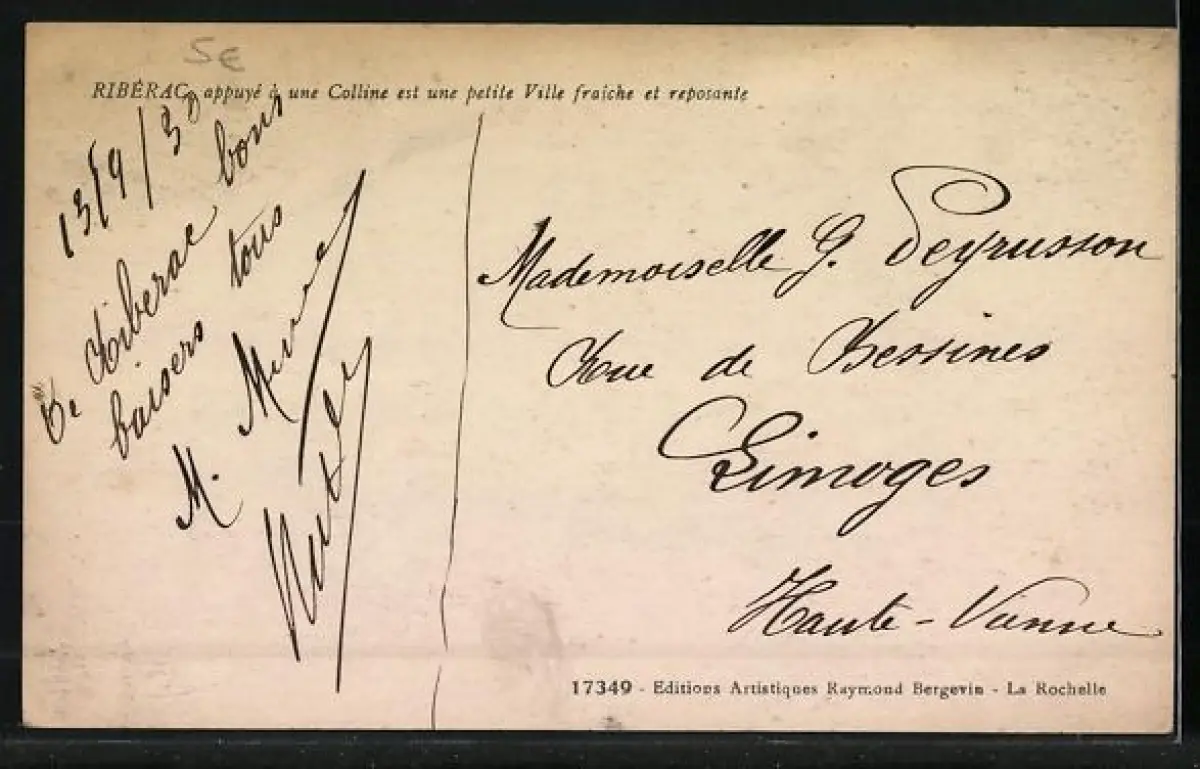 5€
RIBÉRAC, appuyé à une Colline est une petite Ville fraîche et reposante
13/9/30
De Riberac bons
baisers tous
M.
Mademoiselle G. Peyrusson
Rue de Bessines
Limoges
Haute-Vienne
17349 - Editions Artistiques Raymond Bergevin - La Rochelle